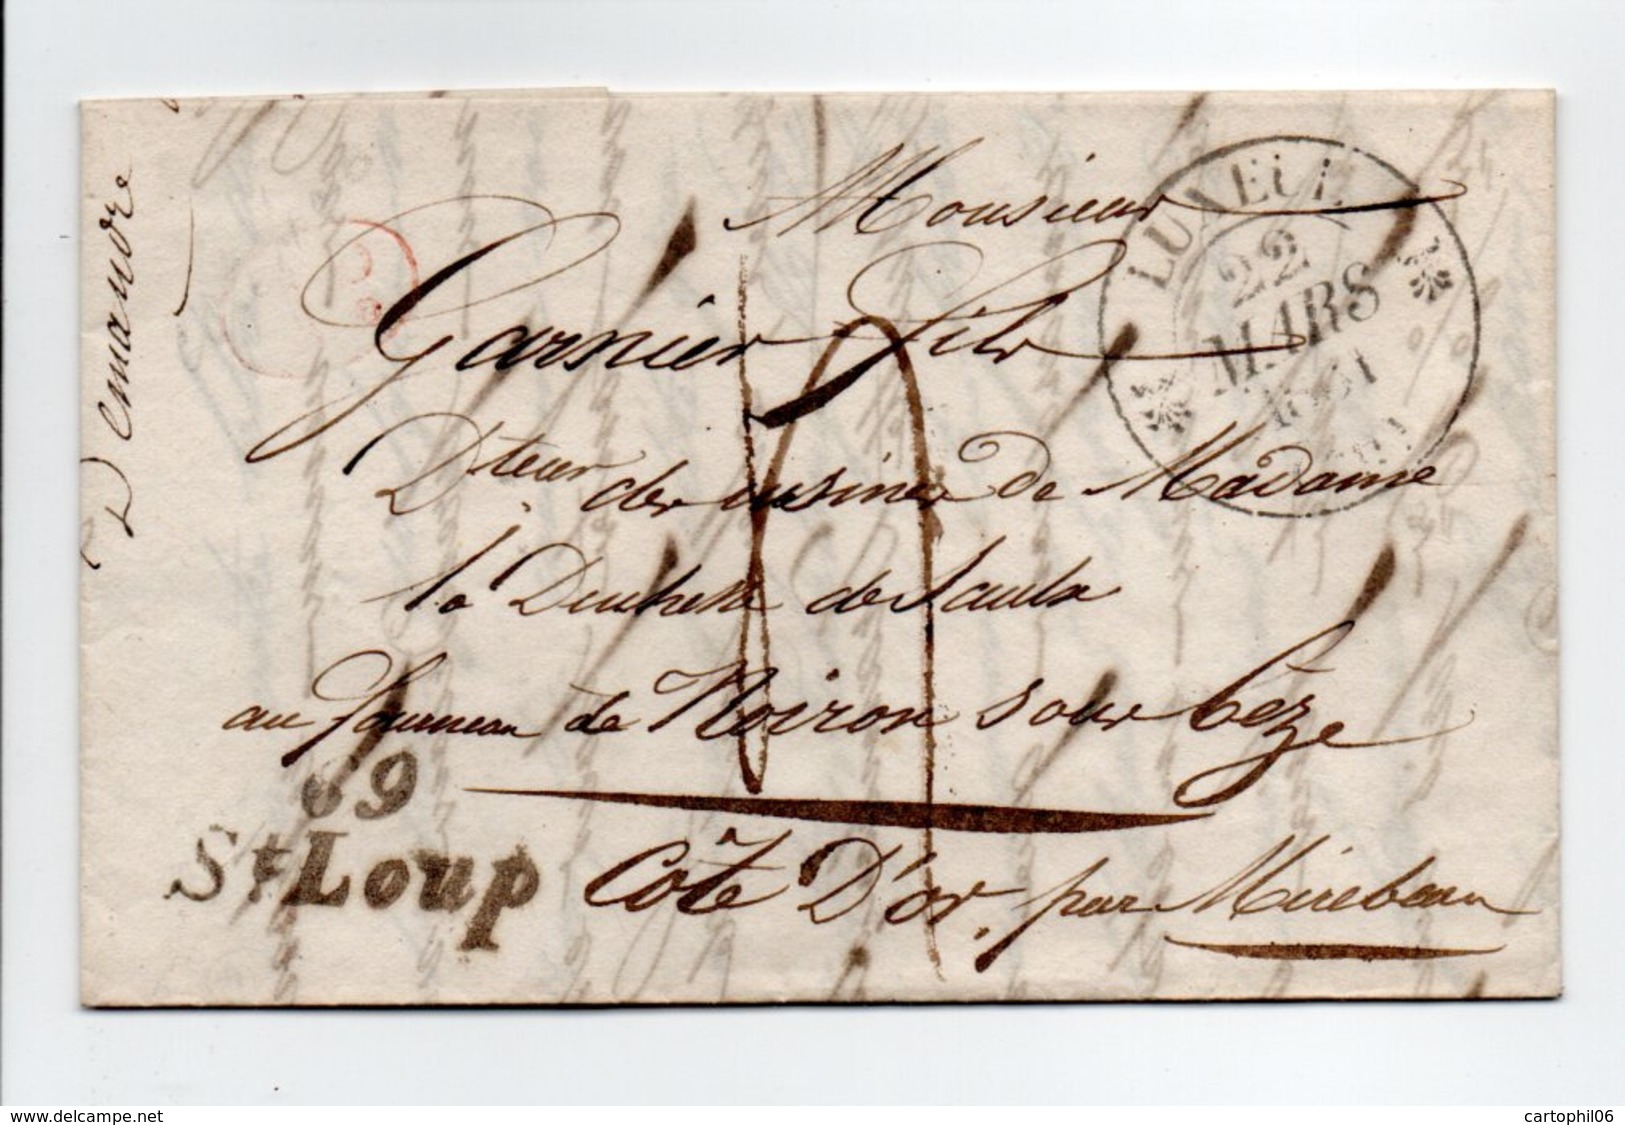 Monsieur
Garnier fils
Dteur des usines de Madame
la Duchesse de Saulx
au fourneau de Noiron sour Bèze
Côte D'or, par Mirebeau
LUXEUIL
22
MARS
69
St Loup
www.delcampe.net
cartophil06